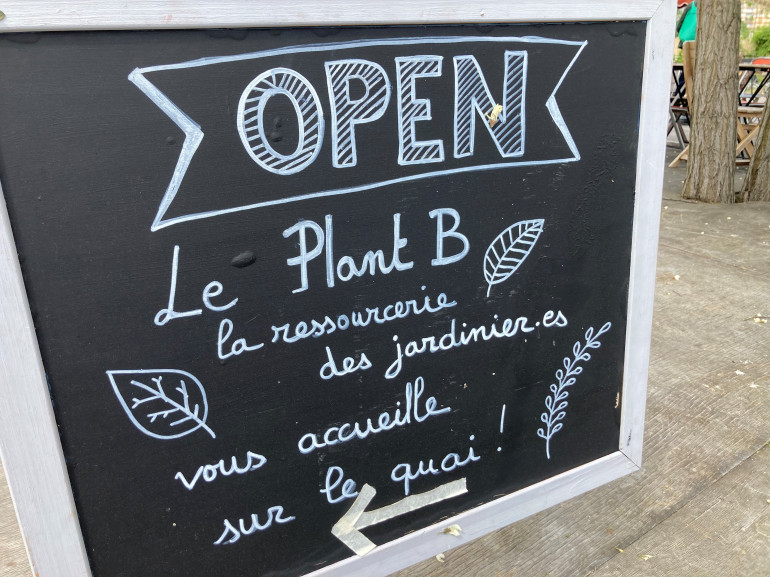 OPEN
Le Plant B
la ressourcerie
des jardinier·es
vous accueille
sur le quai !